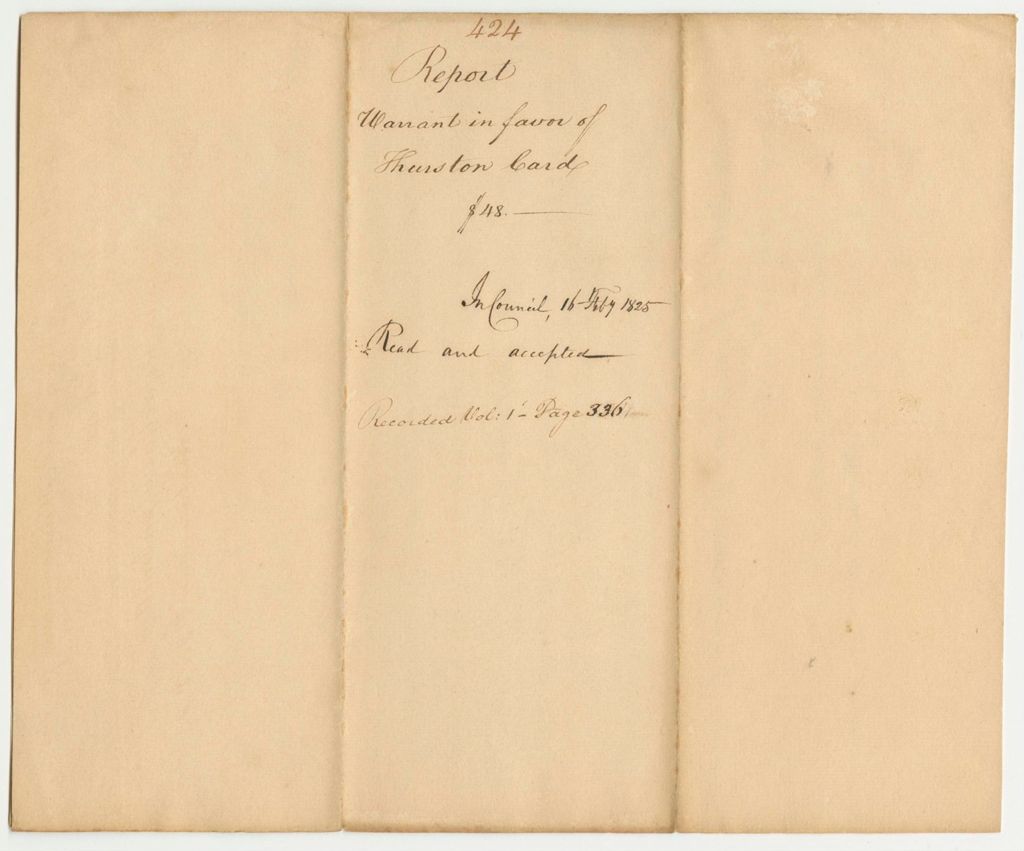 424
Report
Warrant in favor of
Thurston Card
$48.
In Council, 16th Feby 1825
Read and accepted
Recorded Vol: 1 - Page 336